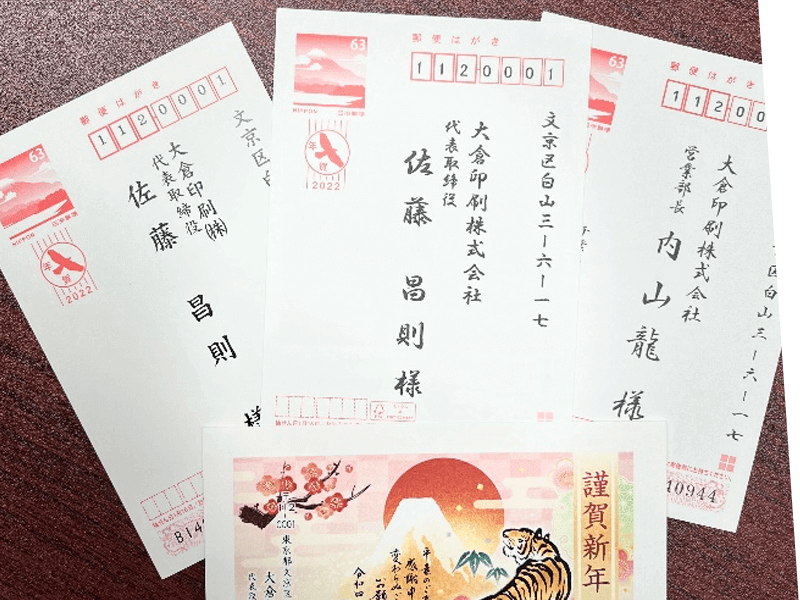 63
NIPPON
日本郵便
郵便はがき
1120001
年賀
2022
文京区
大倉印刷㈱
代表取締役
佐藤 昌則 様
814
63
NIPPON
日本郵便
郵便はがき
1120001
年賀
2022
文京区白山三ー六ー一七
大倉印刷株式会社
代表取締役
佐藤 昌則 様
63
郵便はがき
11200
文京区白山三ー六ー一七
大倉印刷株式会社
営業部長
内山 龍 様
40944
謹賀新年
平素のご
感謝申
変わらぬご
お願
令和四
112
-0001
東京都文京区
大倉
代表